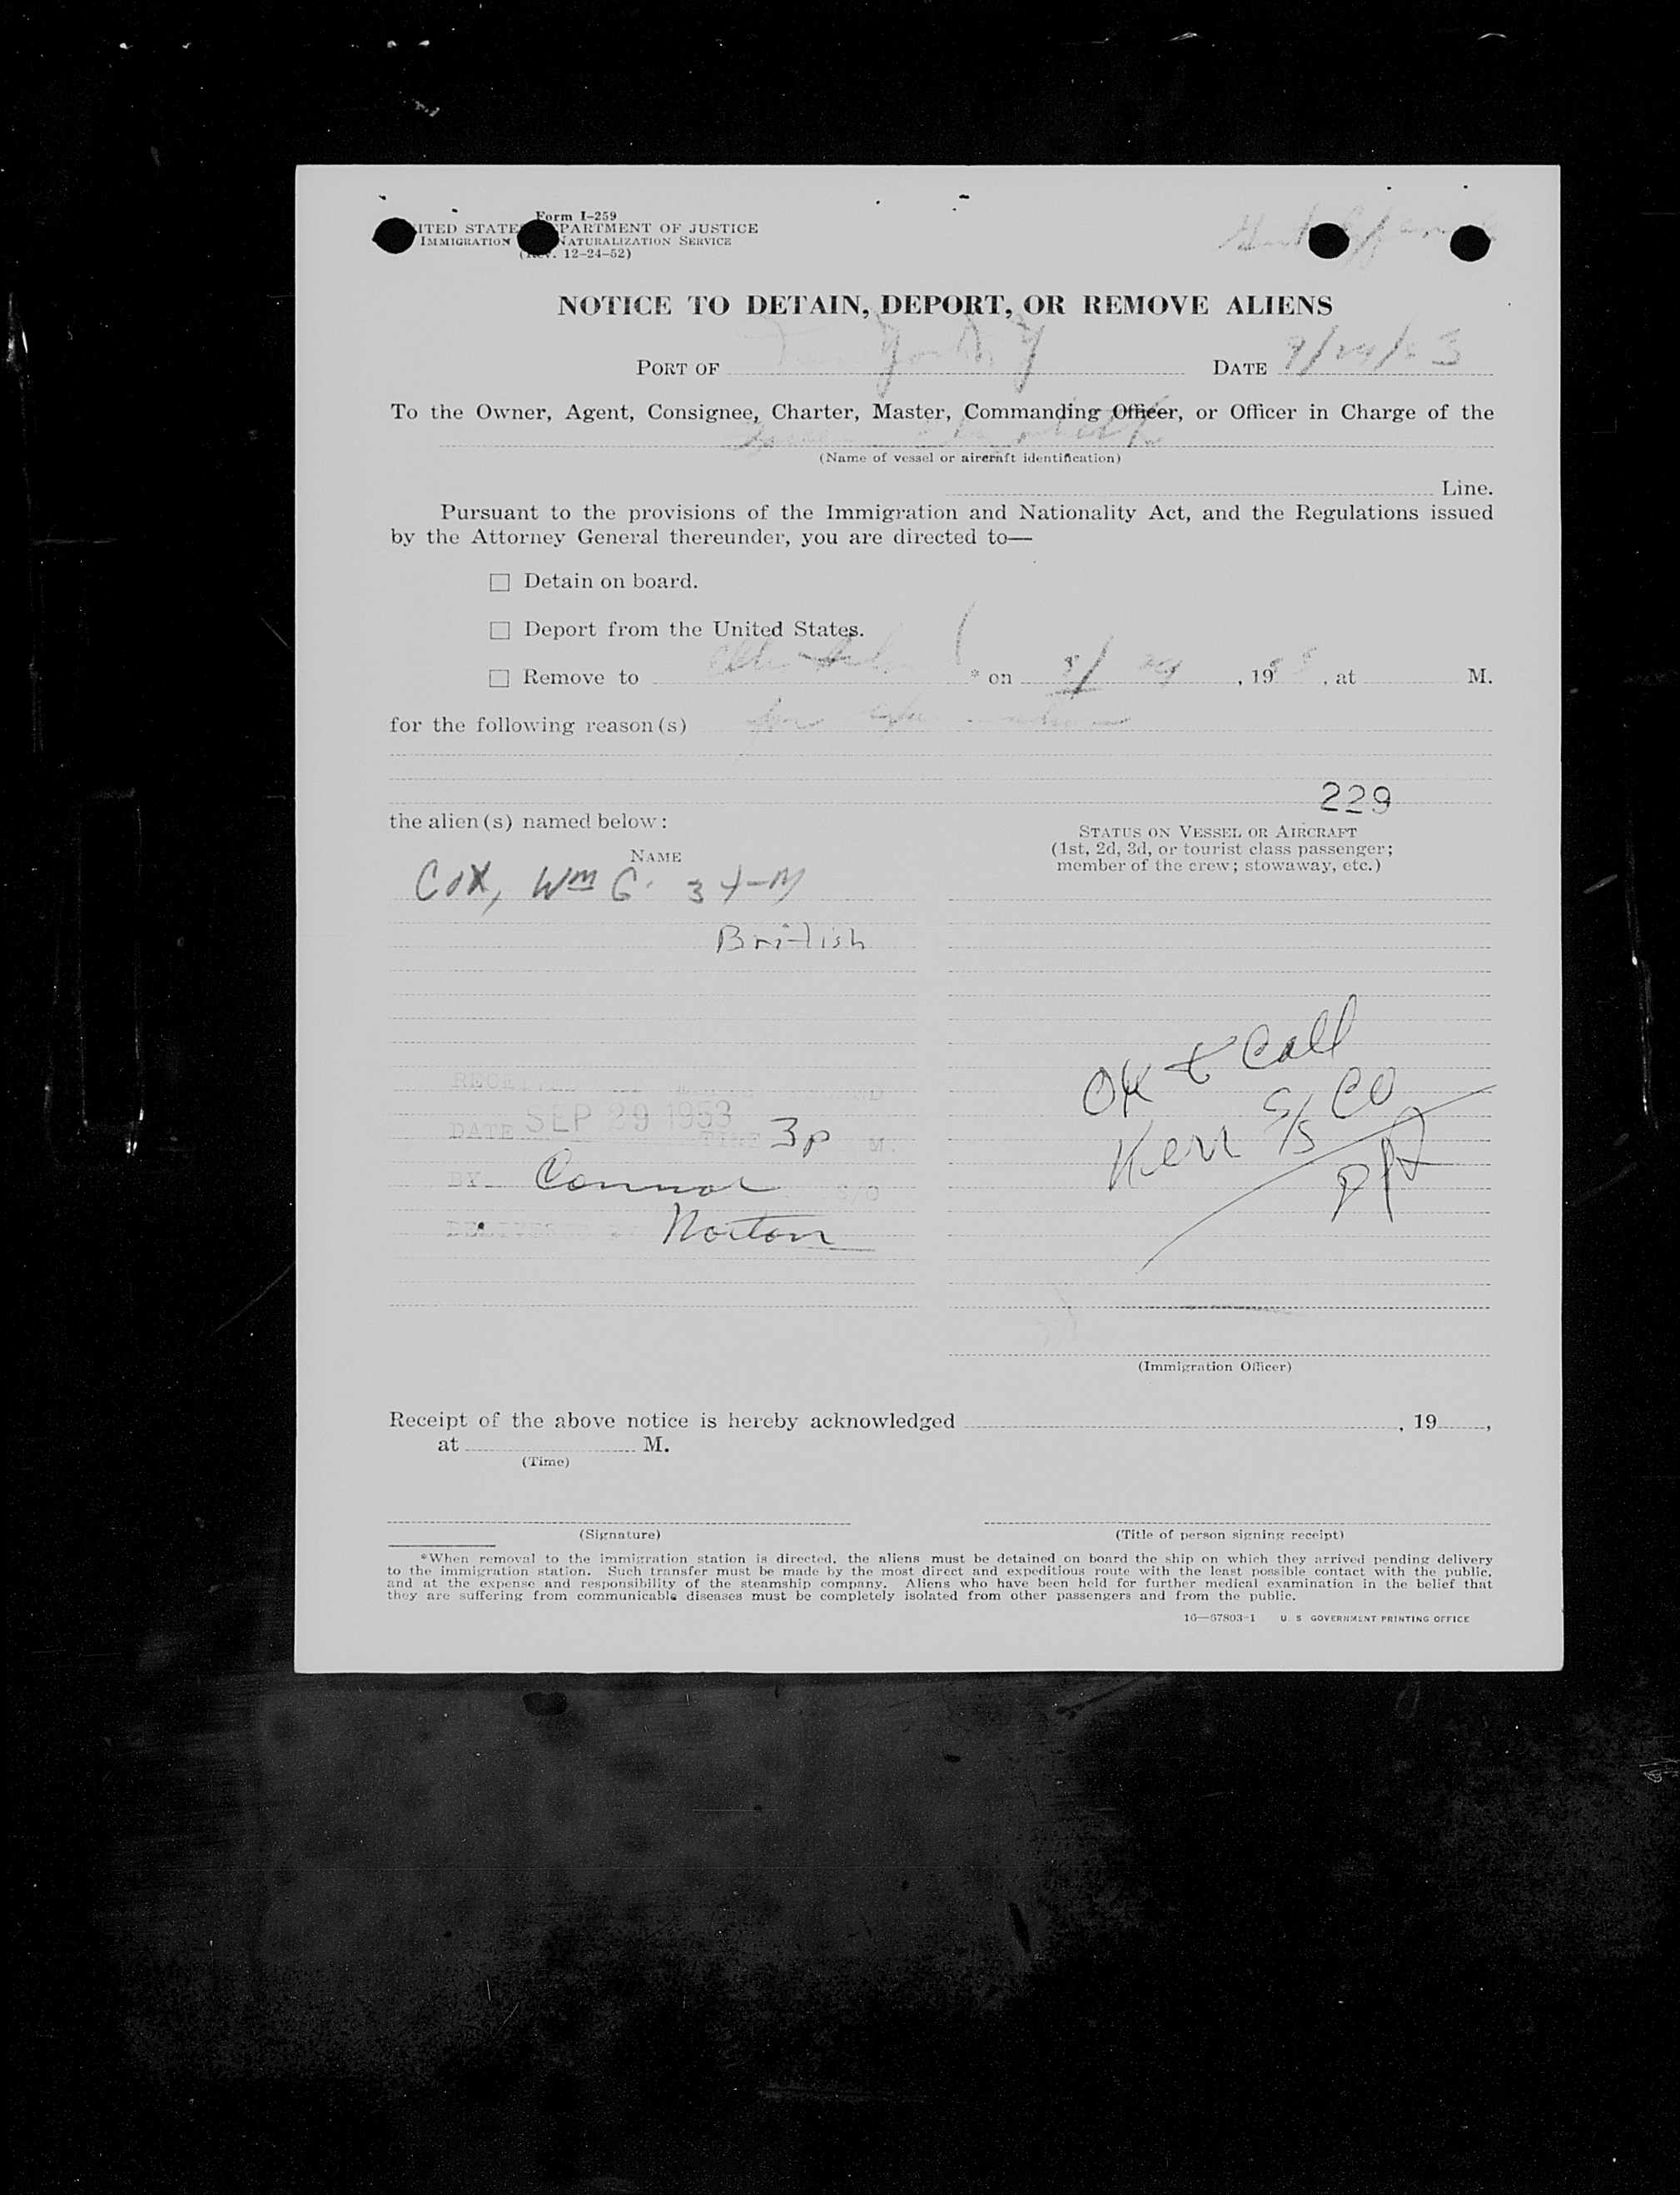 Form I-259
ITED STATE PARTMENT OF JUSTICE
IMMIGRATION NATURALIZATION SERVICE
(Rev. 12-24-52)
NOTICE TO DETAIN, DEPORT, OR REMOVE ALIENS
PORT OF DATE 9/29/53
To the Owner, Agent, Consignee, Charter, Master, Commanding Officer, or Officer in Charge of the
(Name of vessel or aircraft identification)
Line.
Pursuant to the provisions of the Immigration and Nationality Act, and the Regulations issued
by the Attorney General thereunder, you are directed to—
☐ Detain on board.
☐ Deport from the United States.
☐ Remove to * on , 19 , at M.
for the following reason(s)
229
the alien(s) named below:
NAME
STATUS ON VESSEL OR AIRCRAFT
(1st, 2d, 3d, or tourist class passenger;
member of the crew; stowaway, etc.)
Cox, Wm G. 34-M
British
OK & Call
Kerr S/S CO
DATE SEP 29 1953 TIME 3p M.
BY Connor S/O
Norton
(Immigration Officer)
Receipt of the above notice is hereby acknowledged , 19 ,
at M.
(Time)
(Signature)
(Title of person signing receipt)
*When removal to the immigration station is directed, the aliens must be detained on board the ship on which they arrived pending delivery
to the immigration station. Such transfer must be made by the most direct and expeditious route with the least possible contact with the public,
and at the expense and responsibility of the steamship company. Aliens who have been held for further medical examination in the belief that
they are suffering from communicable diseases must be completely isolated from other passengers and from the public.
16—67803-1 U. S. GOVERNMENT PRINTING OFFICE